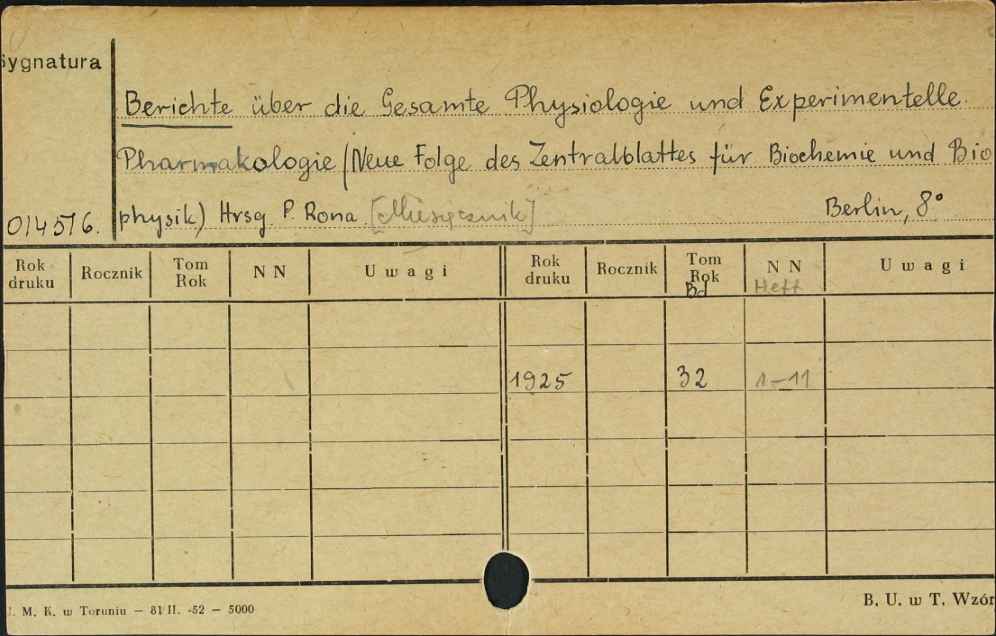 Sygnatura
Berichte über die Gesamte Physiologie und Experimentelle
Pharmakologie (Neue Folge des Zentralblattes für Biochemie und Bio
014576. physik) Hrsg. P. Rona [Miesięcznik] Berlin, 8°
Rok druku Rocznik Tom Rok N N Uwagi Rok druku Rocznik Tom Rok Bd N N Heft Uwagi
1925 32 1-11
. M. K. w Toruniu — 81/II. -52 — 5000
B. U. w T. Wzór